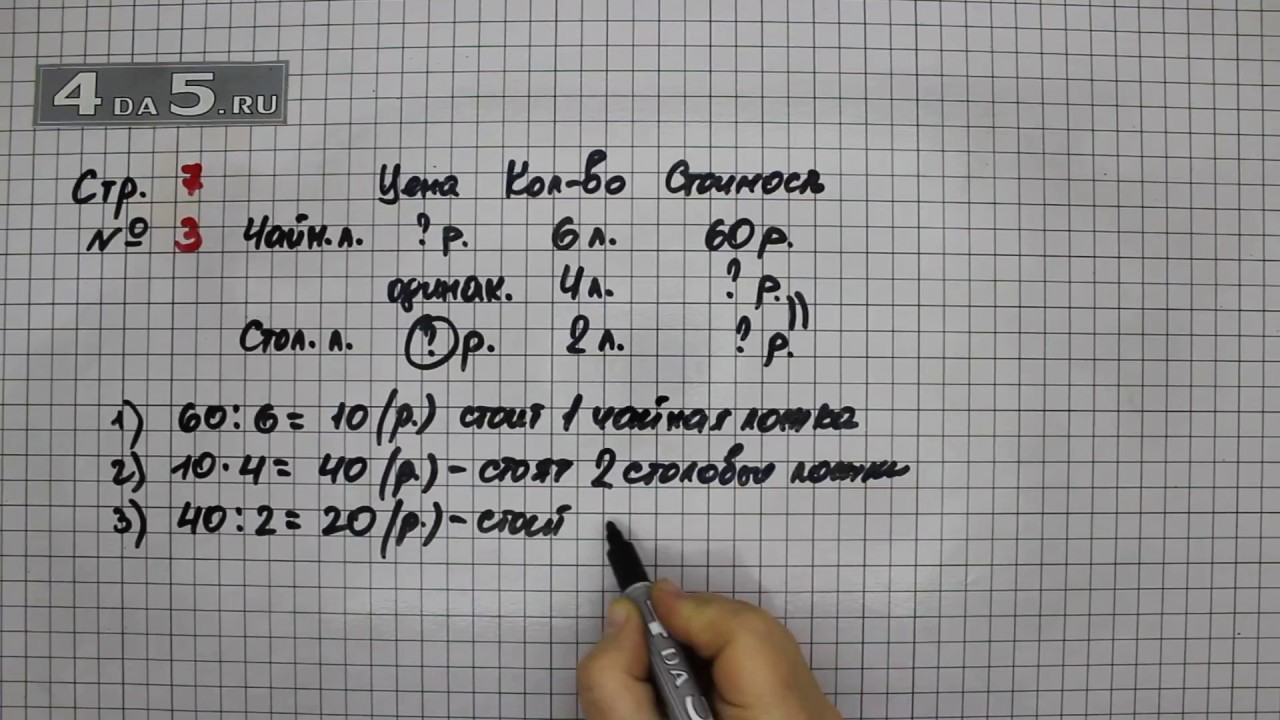 4 DA 5.RU
Стр. 7 Цена Кол-во Стоимость
№ 3 Чайн. л. ? р. 6 л. 60 р.
одинак. 4 л. ? р.
Стол. л. ? р. 2 л. ? р.
1) 60 : 6 = 10 (р.) стоит 1 чайная ложка
2) 10 · 4 = 40 (р.) - стоят 2 столовые ложки
3) 40 : 2 = 20 (р.) - стоит
DA